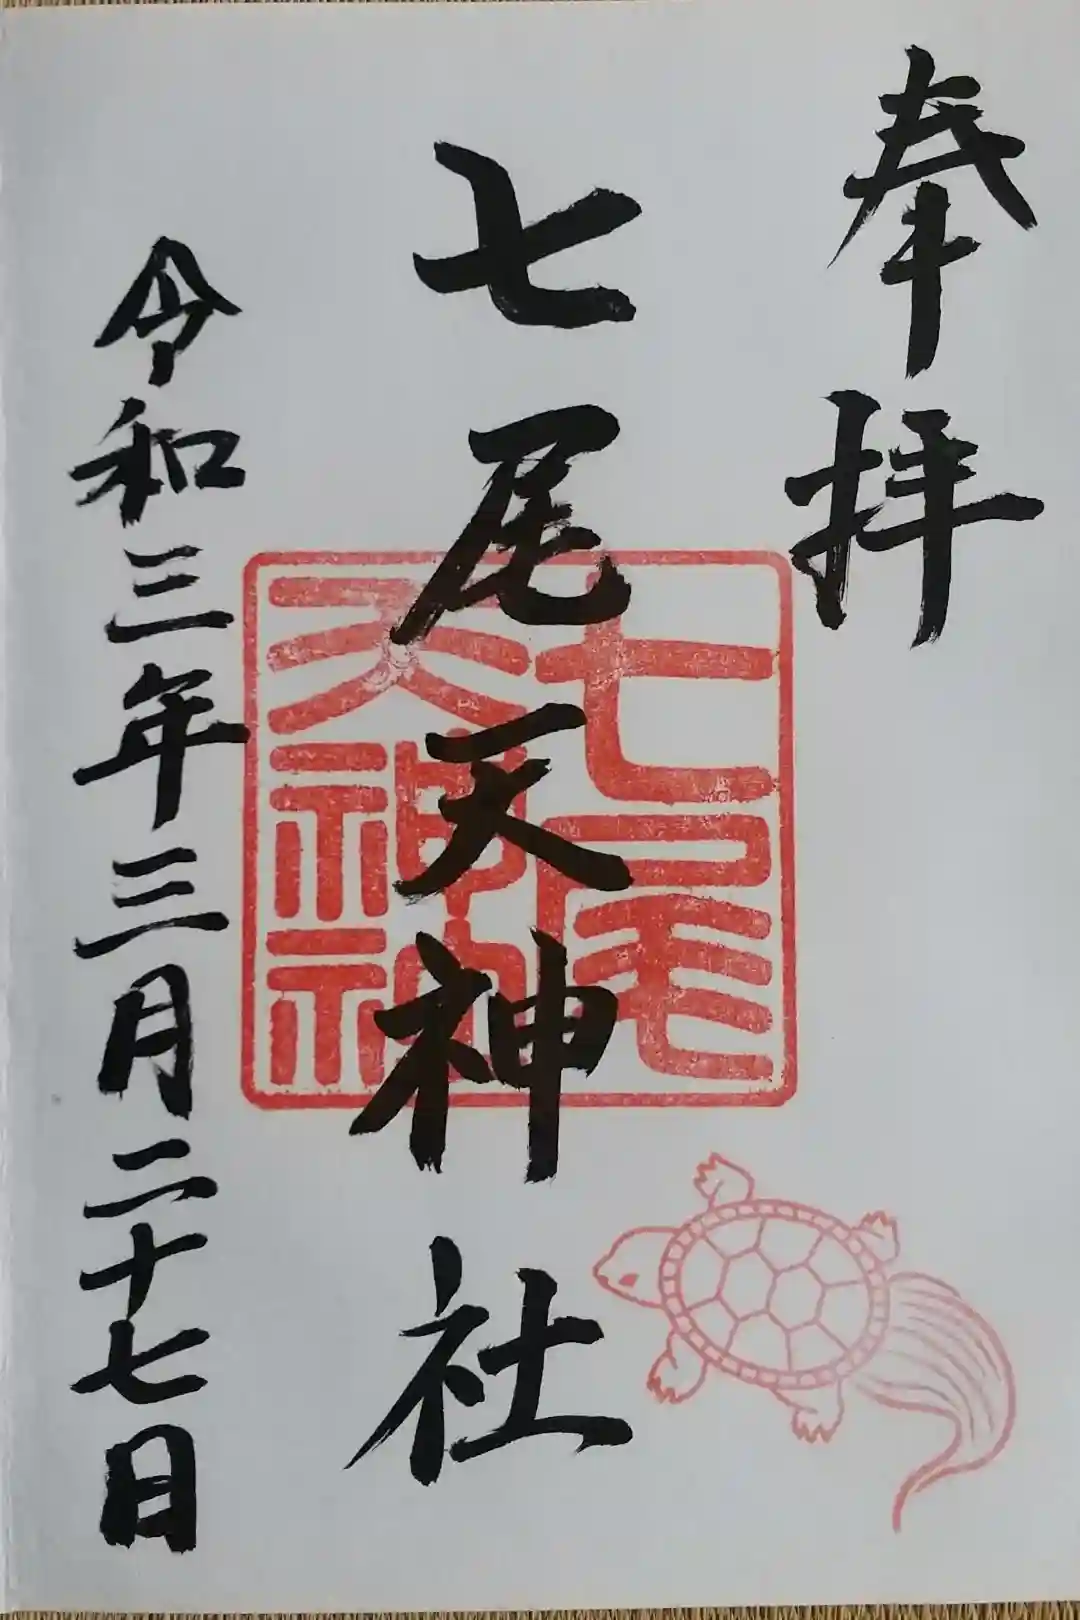 奉拝
七尾天神社
七尾
天神社
令和三年三月二十七日